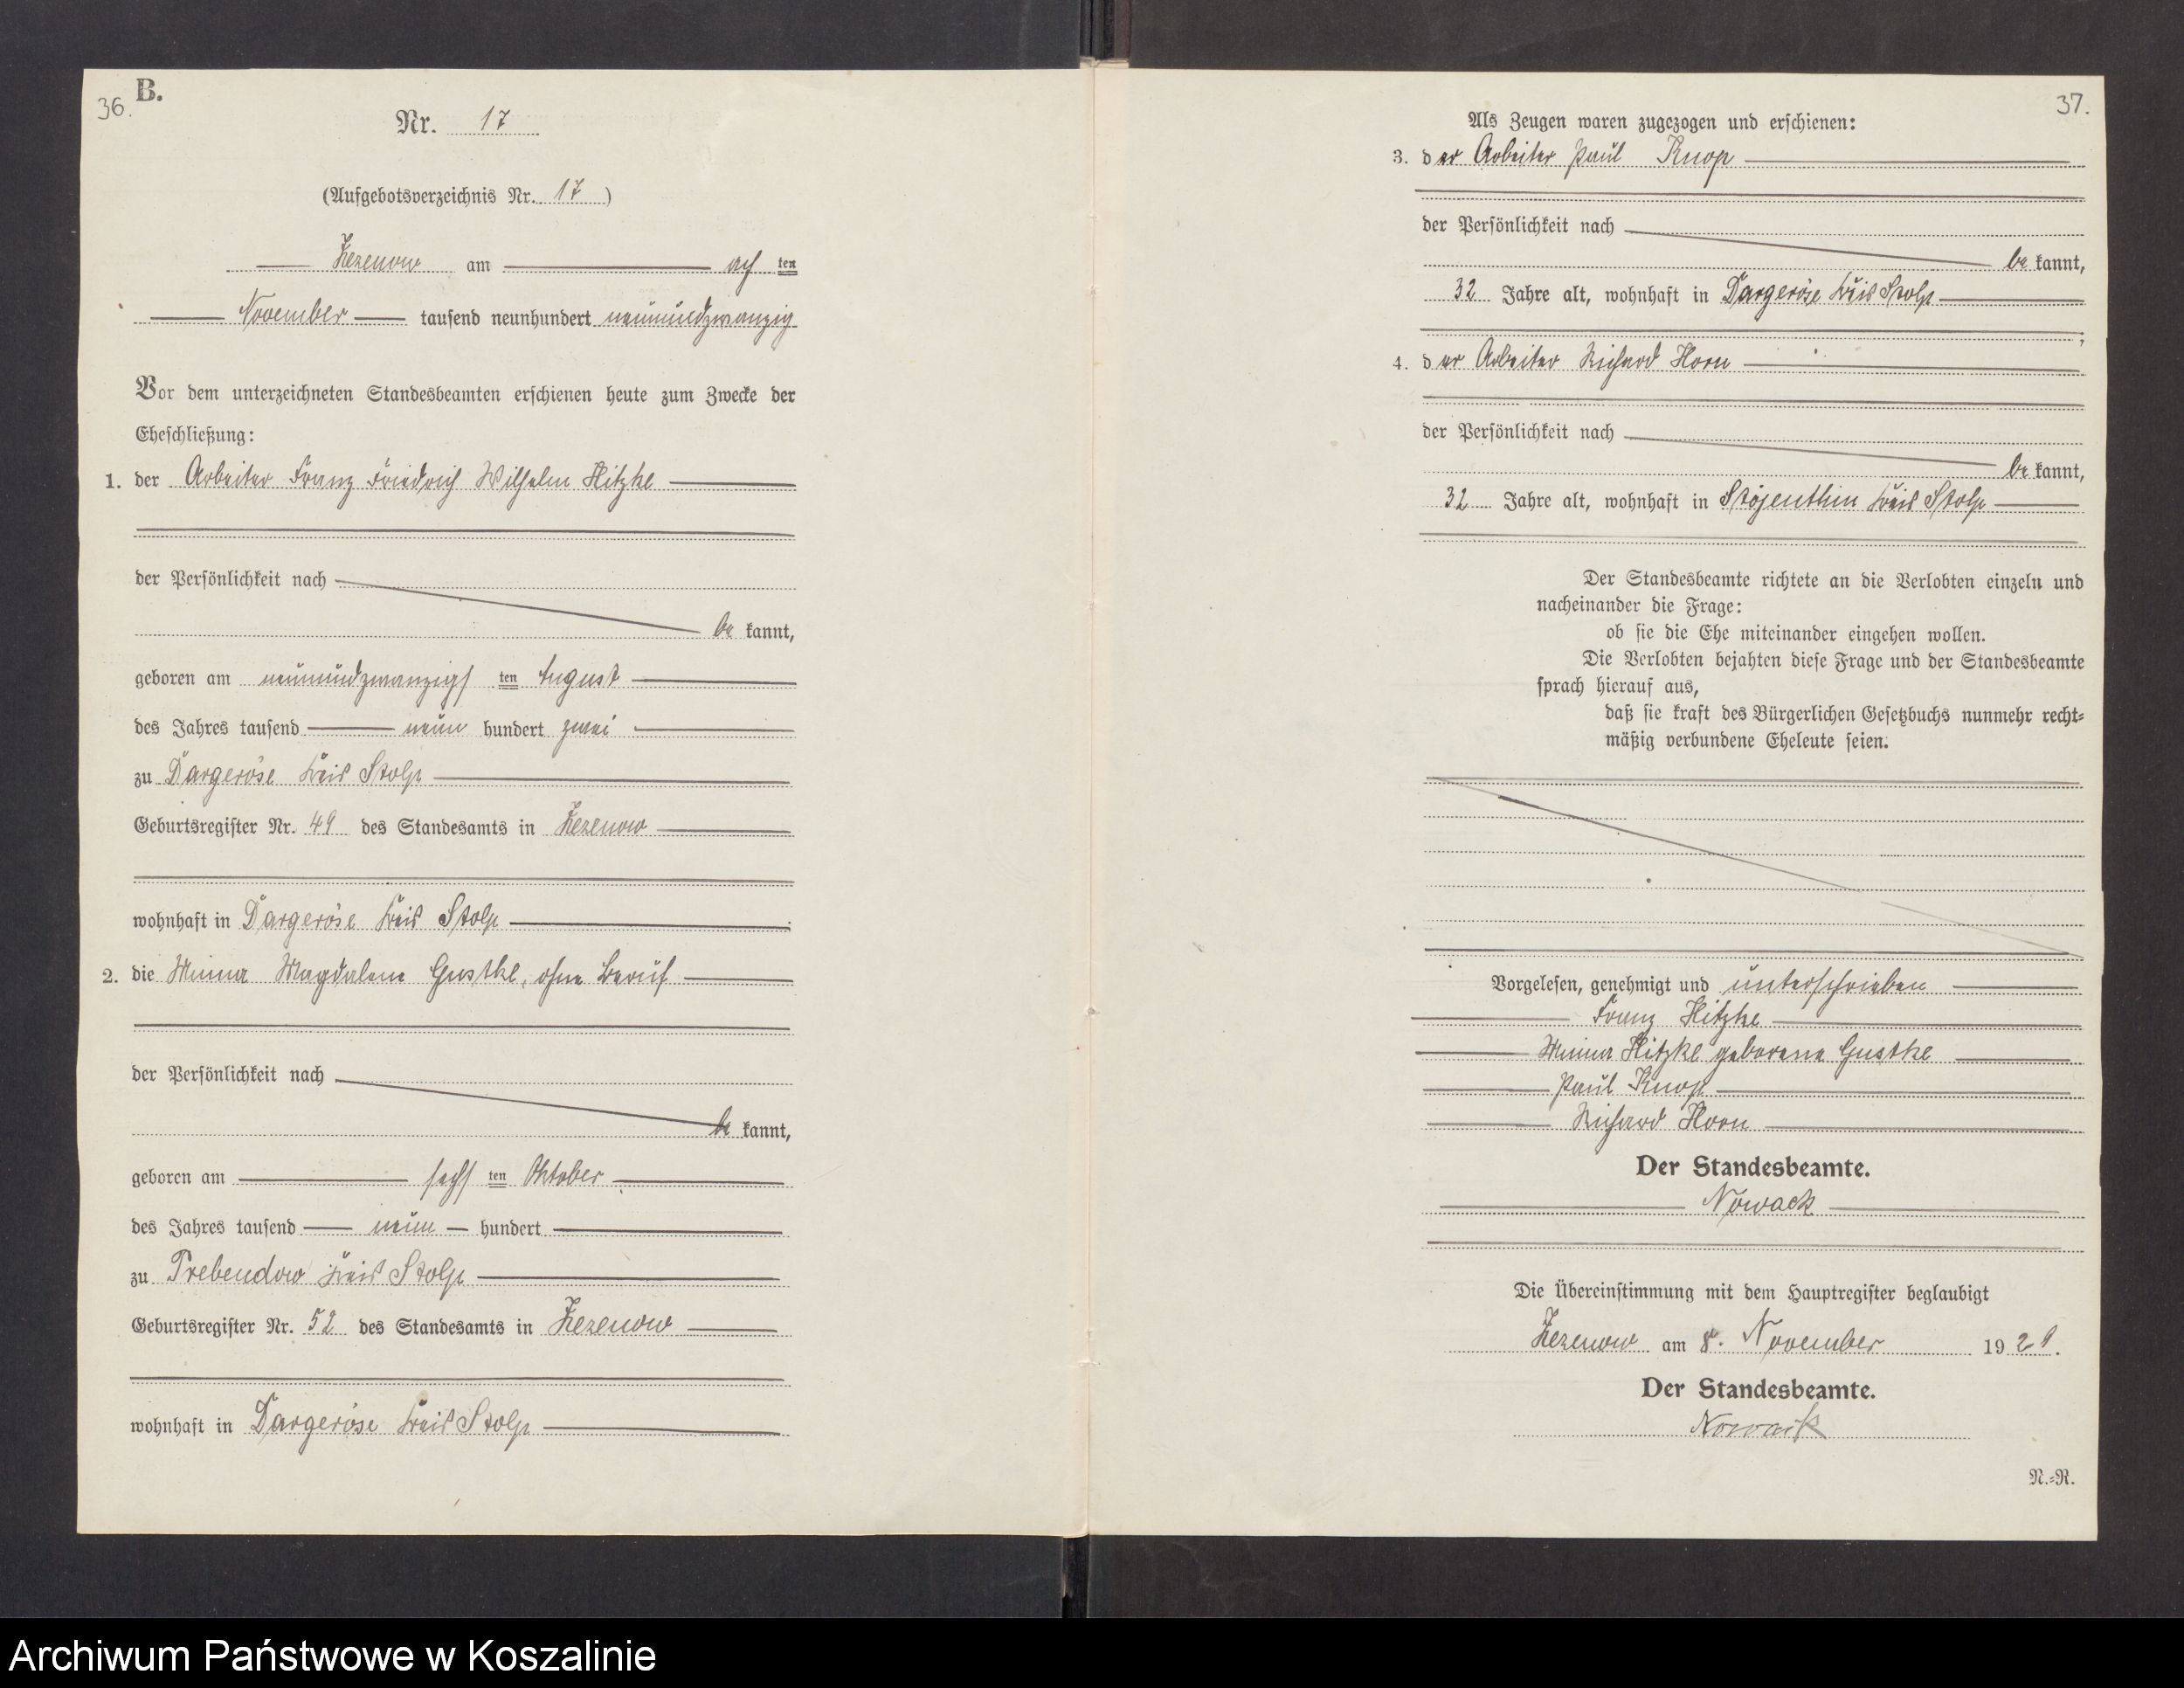 36.
B.
Nr. 17
(Aufgebotsverzeichnis Nr. 17)
Zezenow am ach ten
November tausend neunhundert neunundzwanzig
Vor dem unterzeichneten Standesbeamten erschienen heute zum Zwecke der
Eheschließung:
1. der Arbeiter Franz Friedrich Wilhelm Hitzke
der Persönlichkeit nach
be kannt,
geboren am neunundzwanzigs ten August
des Jahres tausend neun hundert zwei
zu Dargeröse Kreis Stolp
Geburtsregister Nr. 49 des Standesamts in Zezenow
wohnhaft in Dargeröse Kreis Stolp
2. die Minna Magdalene Gustke, ohne Beruf
der Persönlichkeit nach
be kannt,
geboren am sechs ten Oktober
des Jahres tausend neun hundert
zu Prebendow Kreis Stolp
Geburtsregister Nr. 52 des Standesamts in Zezenow
wohnhaft in Dargeröse Kreis Stolp
37.
Als Zeugen waren zugezogen und erschienen:
3. der Arbeiter Paul Knop
der Persönlichkeit nach
be kannt,
32 Jahre alt, wohnhaft in Dargeröse Kreis Stolp
;
4. der Arbeiter Richard Horn
der Persönlichkeit nach
be kannt,
32 Jahre alt, wohnhaft in Stojenthin Kreis Stolp
Der Standesbeamte richtete an die Verlobten einzeln und
nacheinander die Frage:
ob sie die Ehe miteinander eingehen wollen.
Die Verlobten bejahten diese Frage und der Standesbeamte
sprach hierauf aus,
daß sie kraft des Bürgerlichen Gesetzbuchs nunmehr recht-
mäßig verbundene Eheleute seien.
Vorgelesen, genehmigt und unterschrieben
Franz Hitzke
Minna Hitzke geborene Gustke
Paul Knop
Richard Horn
Der Standesbeamte.
Nowack
Die Übereinstimmung mit dem Hauptregister beglaubigt
Zezenow am 8. November 1929.
Der Standesbeamte.
Nowack
N.-R.
Archiwum Państwowe w Koszalinie